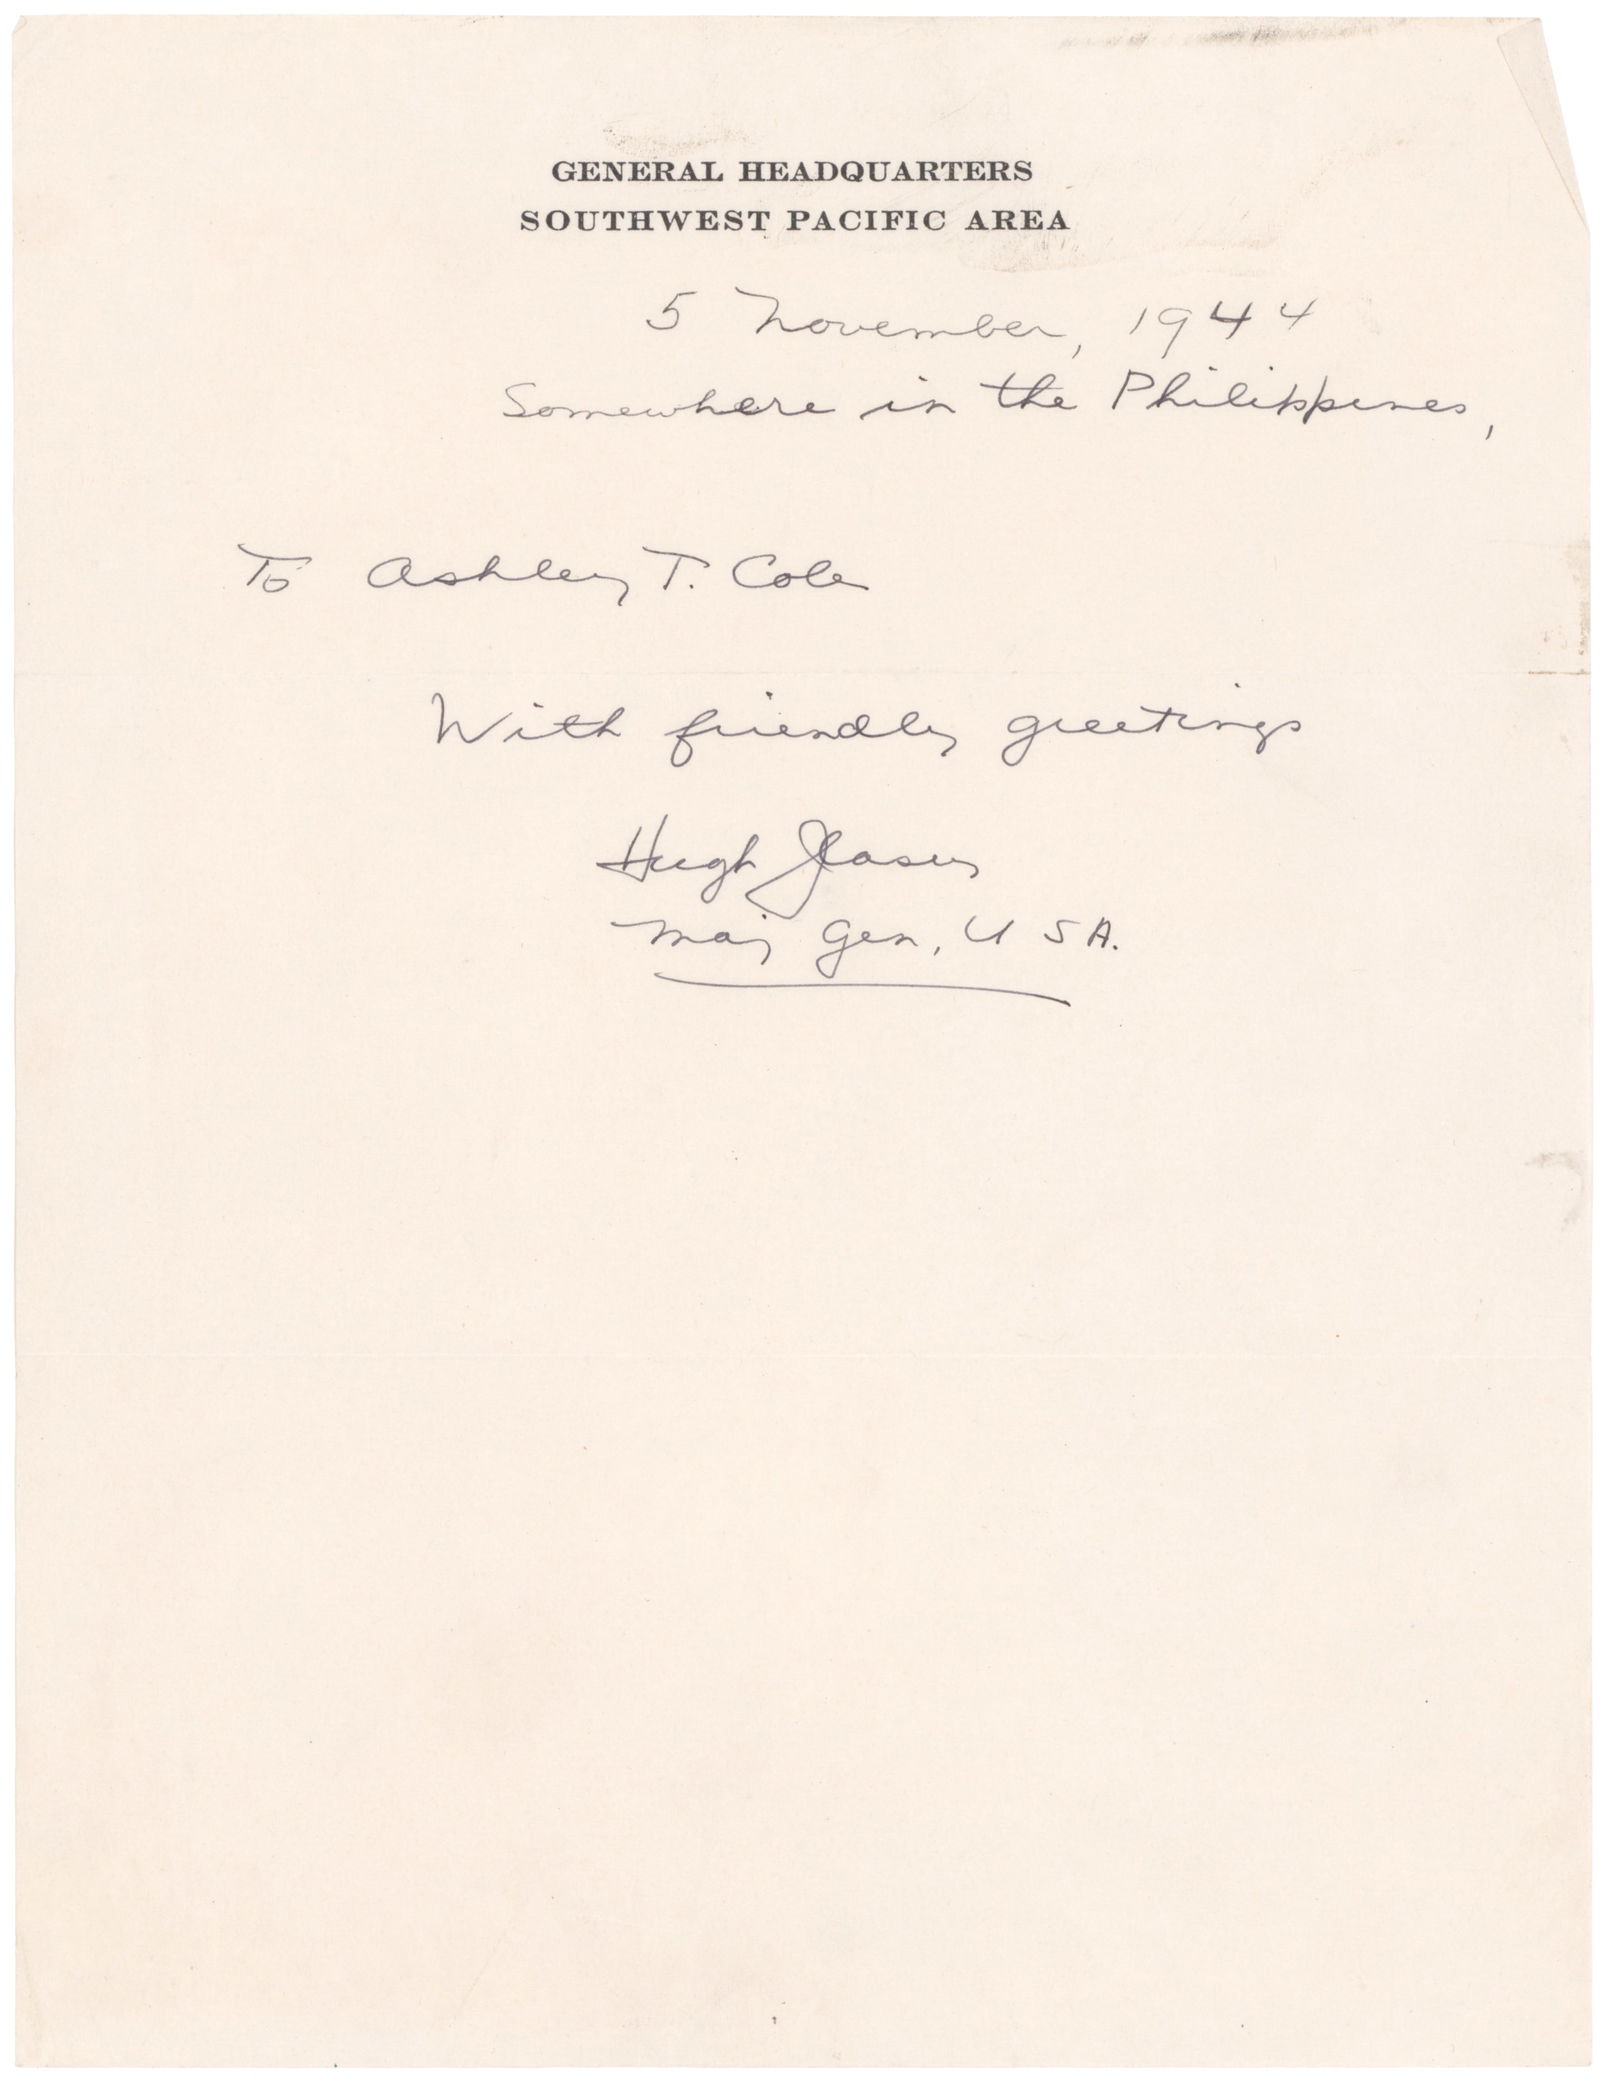 GENERAL HEADQUARTERS
SOUTHWEST PACIFIC AREA
5 November, 1944
Somewhere in the Philippines,
To Ashley T. Cole
With friendly greetings
Hugh J Casey
Maj Gen, USA.